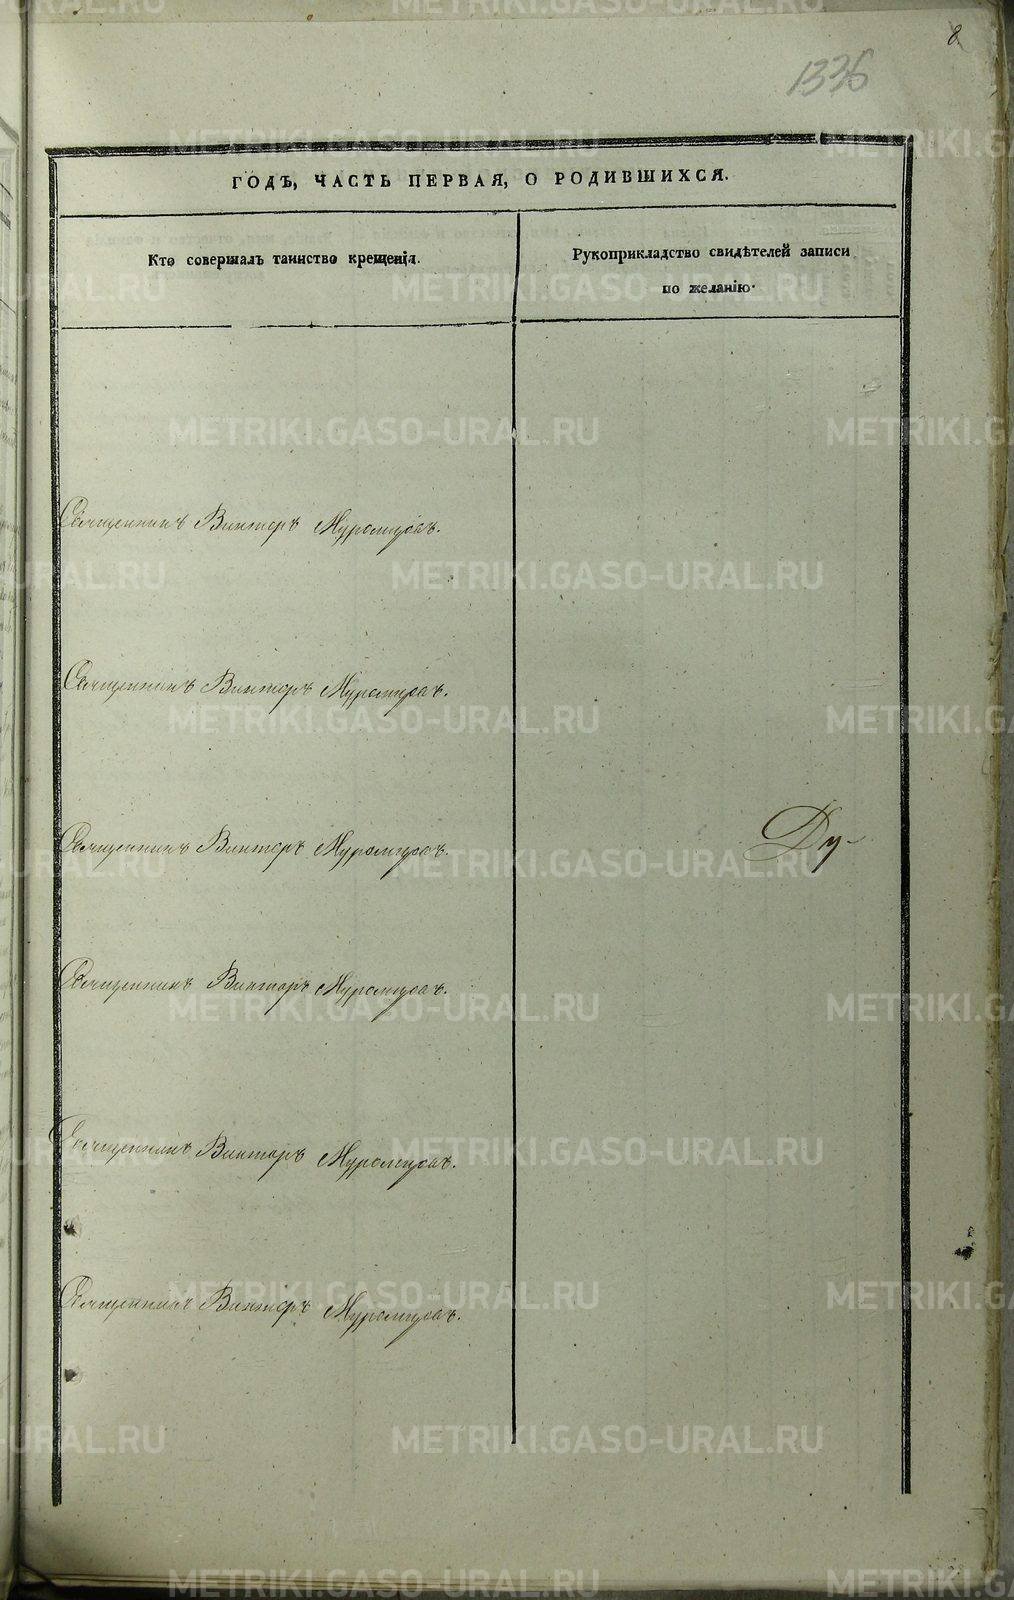 8.
1336
ГОДЪ, ЧАСТЬ ПЕРВАЯ, О РОДИВШИХСЯ.
Кто совершалъ таинство крещенія.
Рукоприкладство свидѣтелей записи
по желанію.
Священникъ Викторъ Муромцовъ.
Священникъ Викторъ Муромцовъ.
Священникъ Викторъ Муромцовъ.
Ду-
Священникъ Викторъ Муромцовъ.
Священникъ Викторъ Муромцовъ.
Священникъ Викторъ Муромцовъ.
METRIKI.GASO-URAL.RU